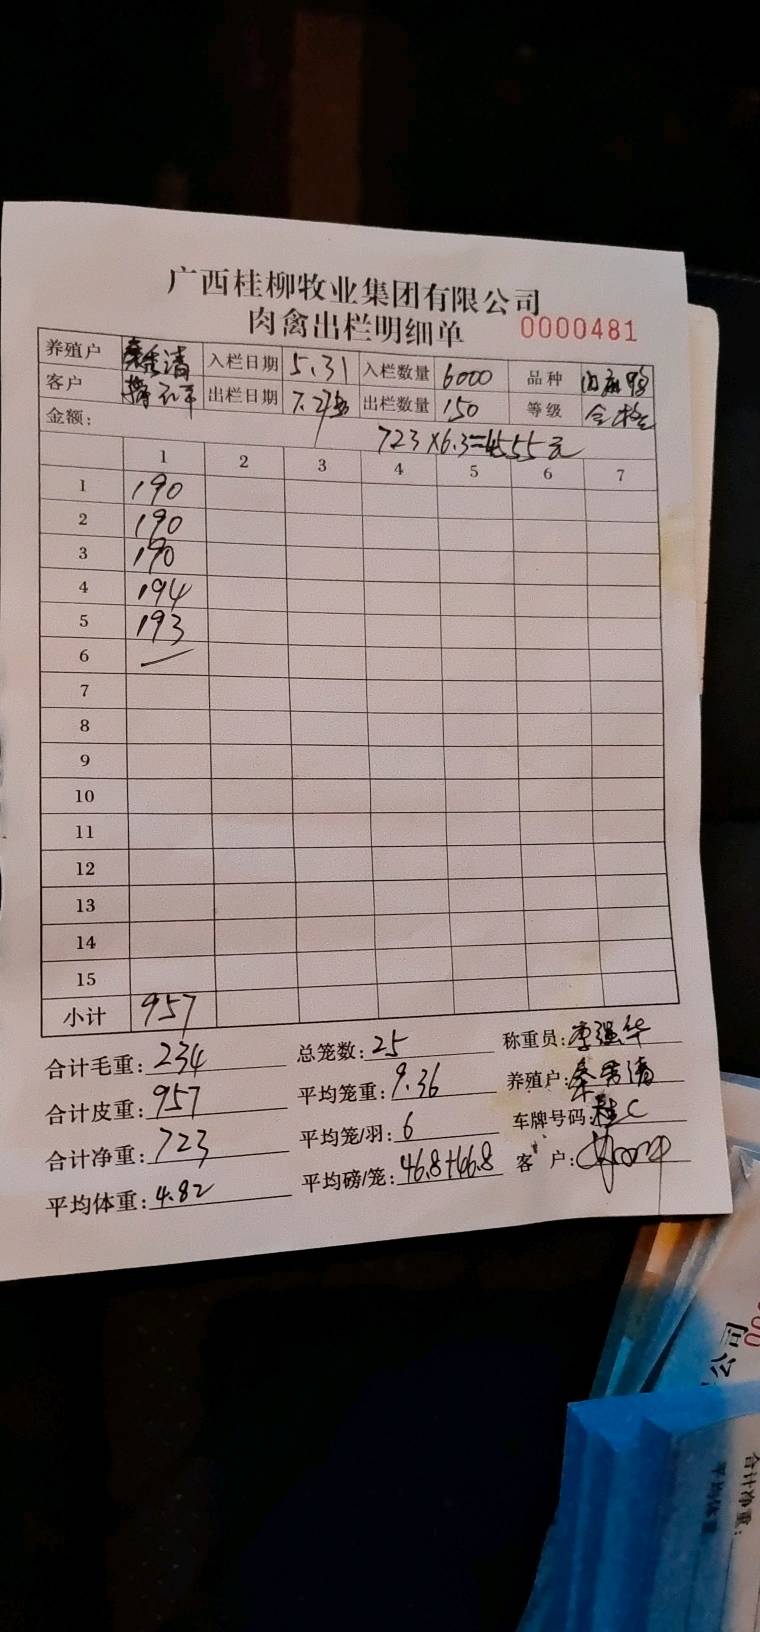 广西桂柳牧业集团有限公司
肉禽出栏明细单 0000481
养殖户 秦秀清 入栏日期 5.31 入栏数量 6000 品种
客户 出栏日期 7.27 出栏数量 150 等级 合格
金额: 723×6.3=4555元
1 2 3 4 5 6 7
1 190
2 190
3 190
4 194
5 193
6 —
7
8
9
10
11
12
13
14
15
小计 957
合计毛重: 234 总笼数: 25 称重员: 李强华
合计皮重: 957 平均笼重: 9.36 养殖户: 秦秀清
合计净重: 723 平均笼/羽: 6 车牌号码: 桂C
平均体重: 4.82 平均磅/笼: 46.8+46.8 客 户:
公司
合计净重:
平均体重